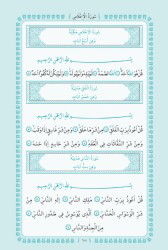 سورة الإخلاص
سورة الإخلاص مكية
وهي أربع آيات
بسم الله الرحمن الرحيم
قل هو الله أحد الله الصمد لم يلد ولم يولد ولم يكن له كفوا أحد
سورة الفلق مكية
بسم الله الرحمن الرحيم
قل أعوذ برب الفلق من شر ما خلق ومن شر غاسق إذا وقب
ومن شر النفاثات في العقد ومن شر حاسد إذا حسد
سورة الناس مكية
بسم الله الرحمن الرحيم
قل أعوذ برب الناس ملك الناس إله الناس من
شر الوسواس الخناس الذي يوسوس في صدور الناس
من الجنة والناس